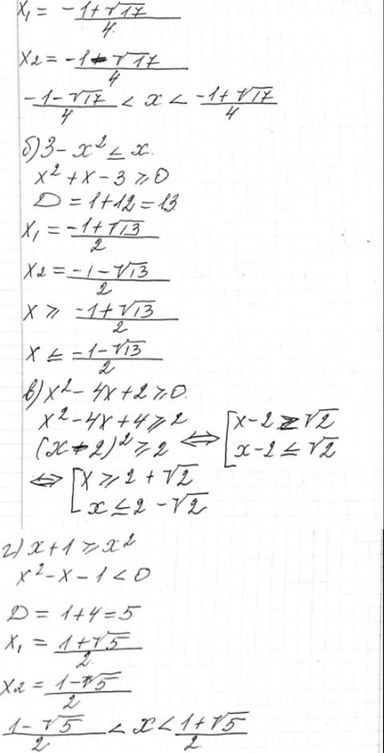 x₁ = -1+√17/4
x₂ = -1-√17/4
-1-√17/4 < x < -1+√17/4
б) 3 - x² ≤ x.
x² + x - 3 ≥ 0
D = 1+12 = 13
x₁ = -1+√13/2
x₂ = -1-√13/2
x ≥ -1+√13/2
x ≤ -1-√13/2
в) x² - 4x + 2 ≥ 0.
x² - 4x + 4 ≥ 2
(x-2)² ≥ 2 ⇔ [x-2 ≥ √2
x-2 ≤ √2
⇔ [x ≥ 2+√2
x ≤ 2-√2
г) x+1 ≥ x²
x² - x - 1 < 0
D = 1+4 = 5
x₁ = 1+√5/2
x₂ = 1-√5/2
1-√5/2 < x < 1+√5/2